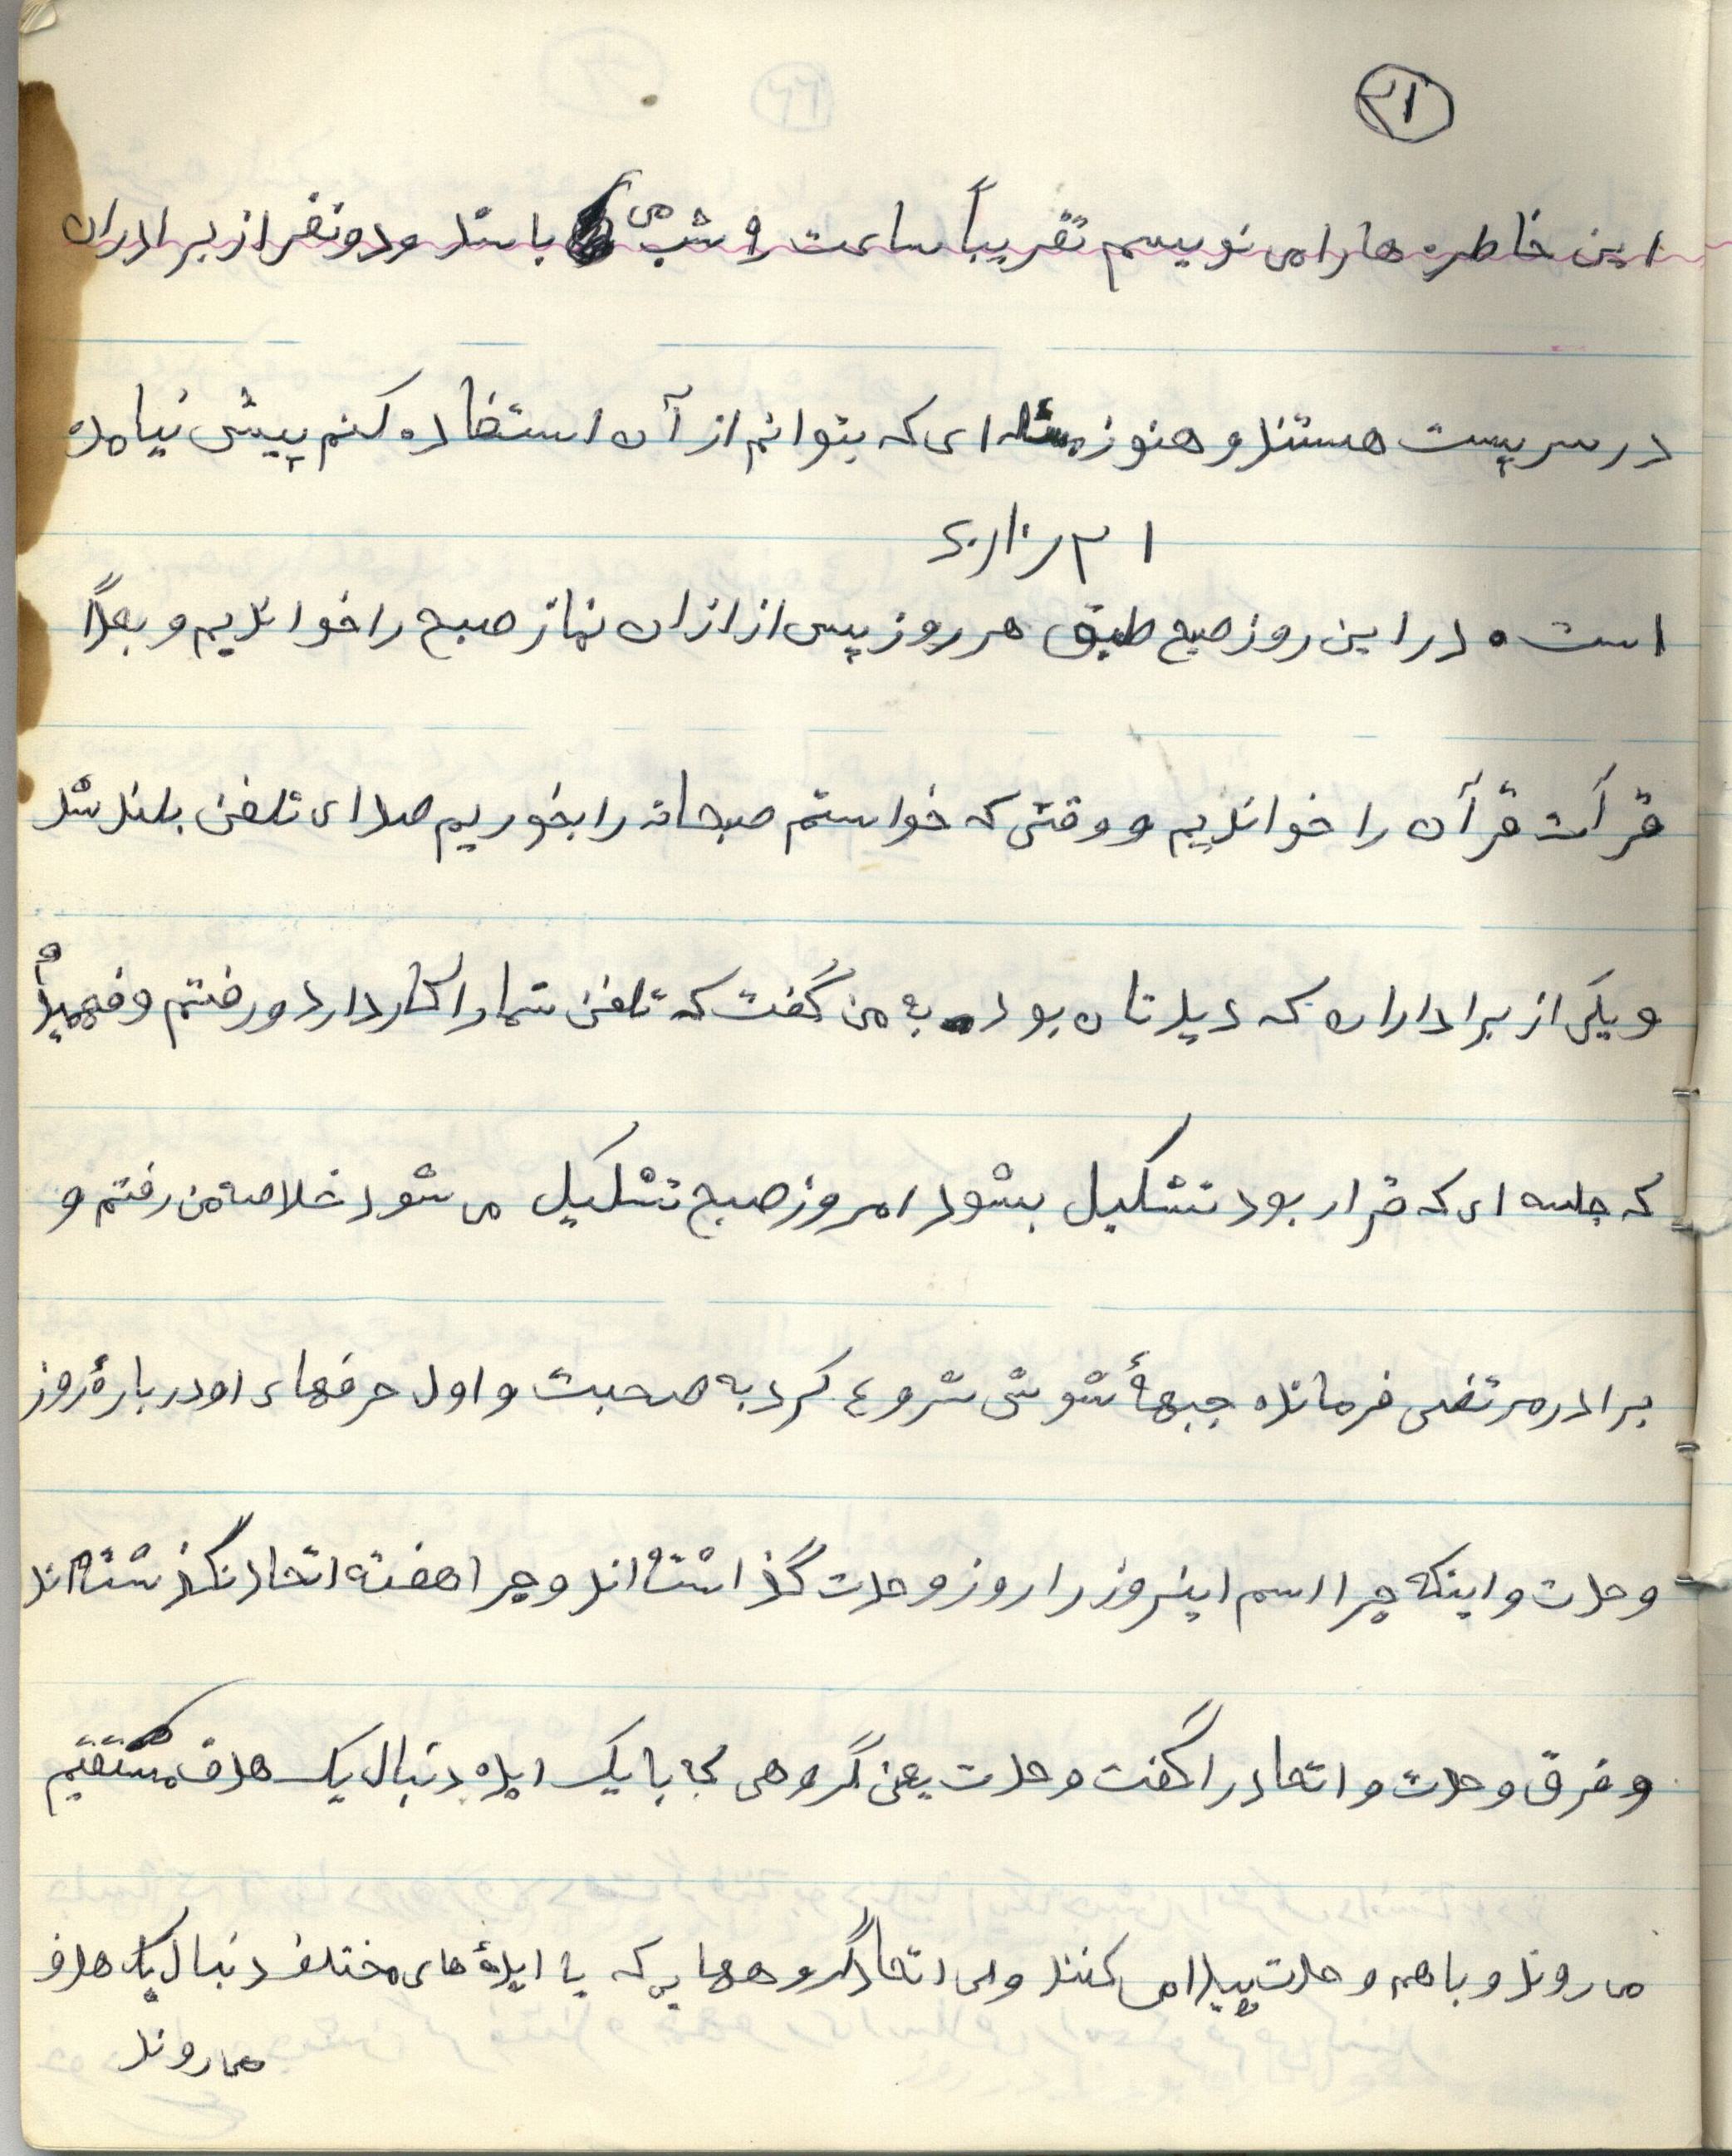 ۲۱
این خاطره ها را می نویسم تقریباً ساعت ۹ شب می باشد و دو نفر از برادران
در سر پست هستند و هنوز مسئله ای که بتوانم از آن استفاده کنم پیش نیامده
است ۰ در این روز صبح طبق هر روز پس از اذان نماز صبح را خواندیم و بعداً
قرآت قرآن را خواندیم و وقتی که خواستم صبحانه را بخوریم صدای تلفن بلند شد
و یکی از براداران که دیدتان بود به من گفت که تلفن شما را کار دارد و رفتم و فهمیدم
که جلسه ای که قرار بود تشکیل بشود امروز صبح تشکیل می شود خلاصه من رفتم و
برادر مرتضی فرمانده جبههٔ شوش شروع کرد به صحبت و اول حرفهای او دربارهٔ روز
وحدت و اینکه چرا اسم اینروز را روز وحدت گذاشته اند و چرا هفته اتحاد نگذشته اند
و فرق وحدت و اتحاد را گفت وحدت یعنی گروهی که با یک ایده دنبال یک هدف مستقیم
می روند و با هم وحدت پیدا می کنند ولی اتحاد گروههایی که با ایدهٔ های مختلف دنبال یک هدف
می روند